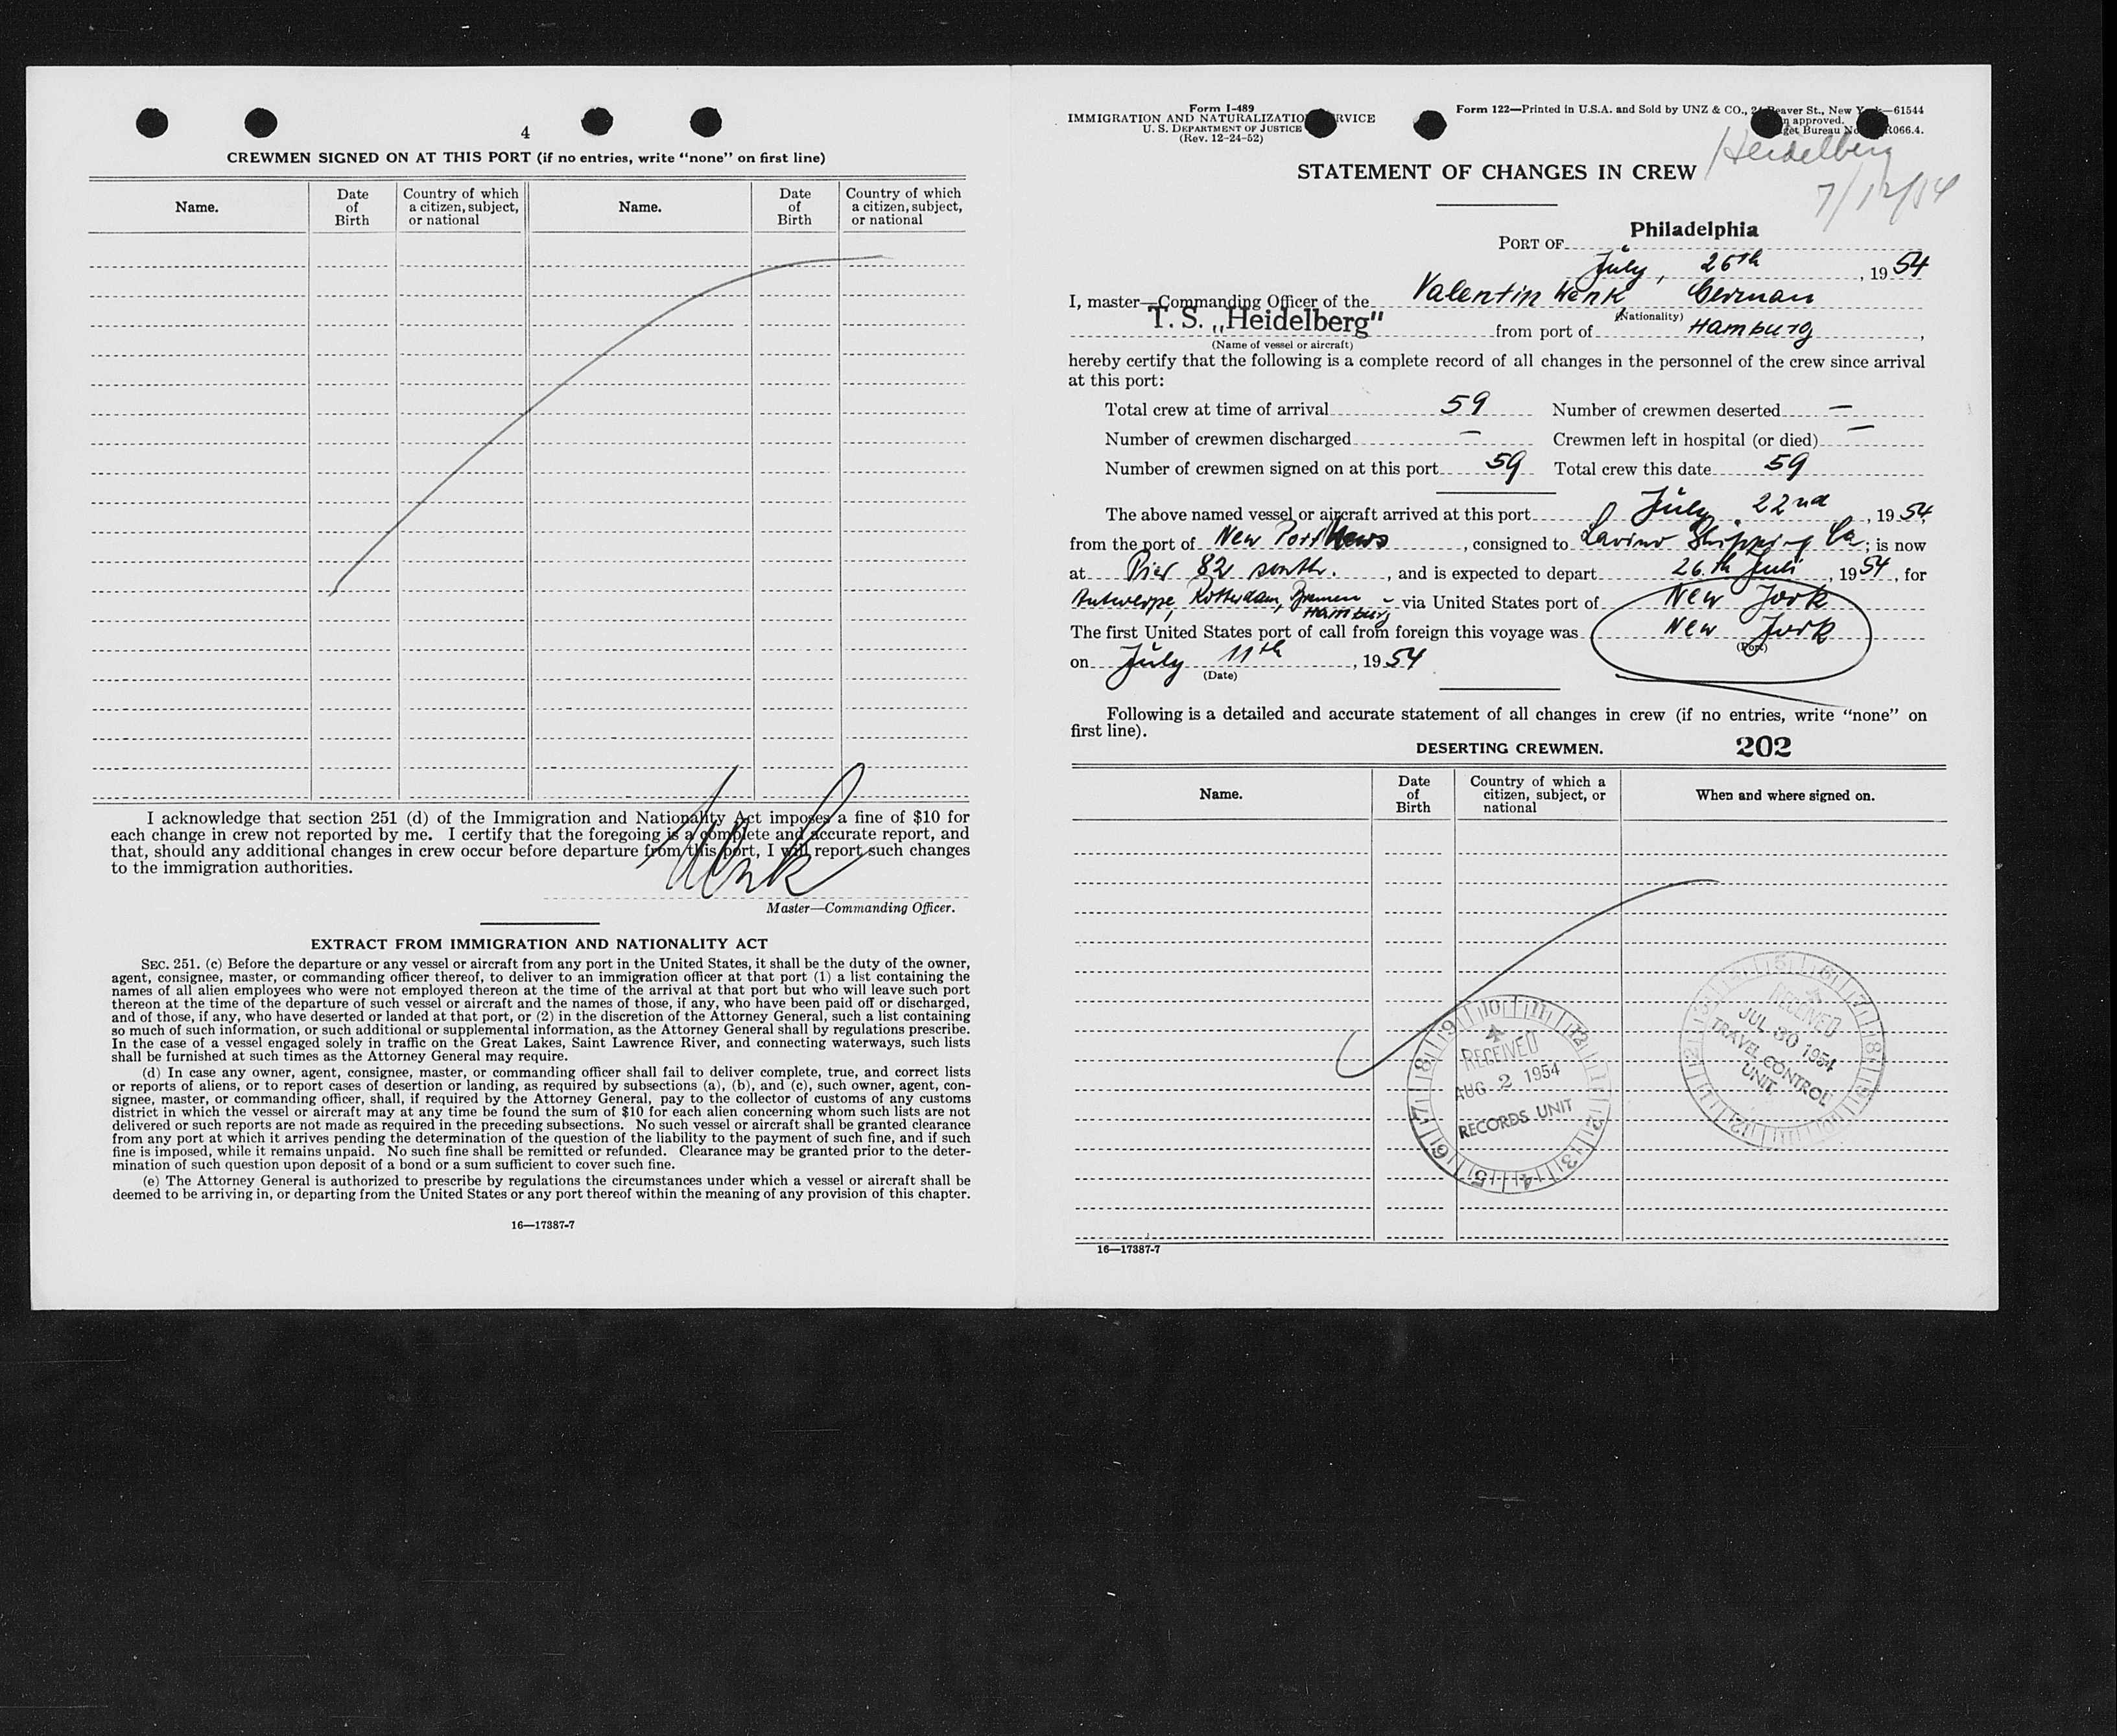 4
CREWMEN SIGNED ON AT THIS PORT (if no entries, write “none” on first line)
Name.
Date of Birth
Country of which a citizen, subject, or national
Name.
Date of Birth
Country of which a citizen, subject, or national
I acknowledge that section 251 (d) of the Immigration and Nationality Act imposes a fine of $10 for
each change in crew not reported by me. I certify that the foregoing is a complete and accurate report, and
that, should any additional changes in crew occur before departure from this port, I will report such changes
to the immigration authorities.
Wenk
Master—Commanding Officer.
EXTRACT FROM IMMIGRATION AND NATIONALITY ACT
SEC. 251. (c) Before the departure or any vessel or aircraft from any port in the United States, it shall be the duty of the owner,
agent, consignee, master, or commanding officer thereof, to deliver to an immigration officer at that port (1) a list containing the
names of all alien employees who were not employed thereon at the time of the arrival at that port but who will leave such port
thereon at the time of the departure of such vessel or aircraft and the names of those, if any, who have been paid off or discharged,
and of those, if any, who have deserted or landed at that port, or (2) in the discretion of the Attorney General, such a list containing
so much of such information, or such additional or supplemental information, as the Attorney General shall by regulations prescribe.
In the case of a vessel engaged solely in traffic on the Great Lakes, Saint Lawrence River, and connecting waterways, such lists
shall be furnished at such times as the Attorney General may require.
(d) In case any owner, agent, consignee, master, or commanding officer shall fail to deliver complete, true, and correct lists
or reports of aliens, or to report cases of desertion or landing, as required by subsections (a), (b), and (c), such owner, agent, con-
signee, master, or commanding officer, shall, if required by the Attorney General, pay to the collector of customs of any customs
district in which the vessel or aircraft may at any time be found the sum of $10 for each alien concerning whom such lists are not
delivered or such reports are not made as required in the preceding subsections. No such vessel or aircraft shall be granted clearance
from any port at which it arrives pending the determination of the question of the liability to the payment of such fine, and if such
fine is imposed, while it remains unpaid. No such fine shall be remitted or refunded. Clearance may be granted prior to the deter-
mination of such question upon deposit of a bond or a sum sufficient to cover such fine.
(e) The Attorney General is authorized to prescribe by regulations the circumstances under which a vessel or aircraft shall be
deemed to be arriving in, or departing from the United States or any port thereof within the meaning of any provision of this chapter.
16—17387-7
Form I-489
IMMIGRATION AND NATURALIZATIO RVICE
U. S. DEPARTMENT OF JUSTICE
(Rev. 12-24-52)
Form 122—Printed in U.S.A. and Sold by UNZ & CO., 24 Beaver St., New Y—61544
approved.
get Bureau No. R066.4.
Heidelberg
7/12/54
STATEMENT OF CHANGES IN CREW
PORT OF Philadelphia
July, 26th, 1954
I, master—Commanding Officer of the Valentin Wenk German
(Nationality)
T. S. „Heidelberg" from port of Hamburg,
(Name of vessel or aircraft)
hereby certify that the following is a complete record of all changes in the personnel of the crew since arrival
at this port:
Total crew at time of arrival 59 Number of crewmen deserted —
Number of crewmen discharged — Crewmen left in hospital (or died) —
Number of crewmen signed on at this port 59 Total crew this date 59
The above named vessel or aircraft arrived at this port July 22nd, 1954,
from the port of New Port News, consigned to Lavino Shipping Co; is now
at Pier 82 south., and is expected to depart 26.th Juli, 1954, for
Antwerpe, Rotterdam, Bremen - via United States port of New York
Hamburg
The first United States port of call from foreign this voyage was New York
(Port)
on July 11th, 1954
(Date)
Following is a detailed and accurate statement of all changes in crew (if no entries, write “none” on
first line).
DESERTING CREWMEN.
202
Name.
Date of Birth
Country of which a citizen, subject, or national
When and where signed on.
RECEIVED
AUG 2 1954
RECORDS UNIT
RECEIVED
JUL 30 1954
TRAVEL CONTROL
UNIT
16—17387-7